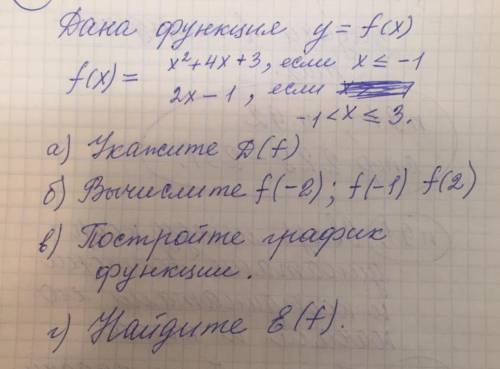 Дана функция y = f(x)
f(x) = x²+4x+3, если x ≤ -1
2x-1, если
-1 < x ≤ 3.
а) Укажите D(f)
б) Вычислите f(-2); f(-1) f(2)
в) Постройте график
функции.
г) Найдите E(f).